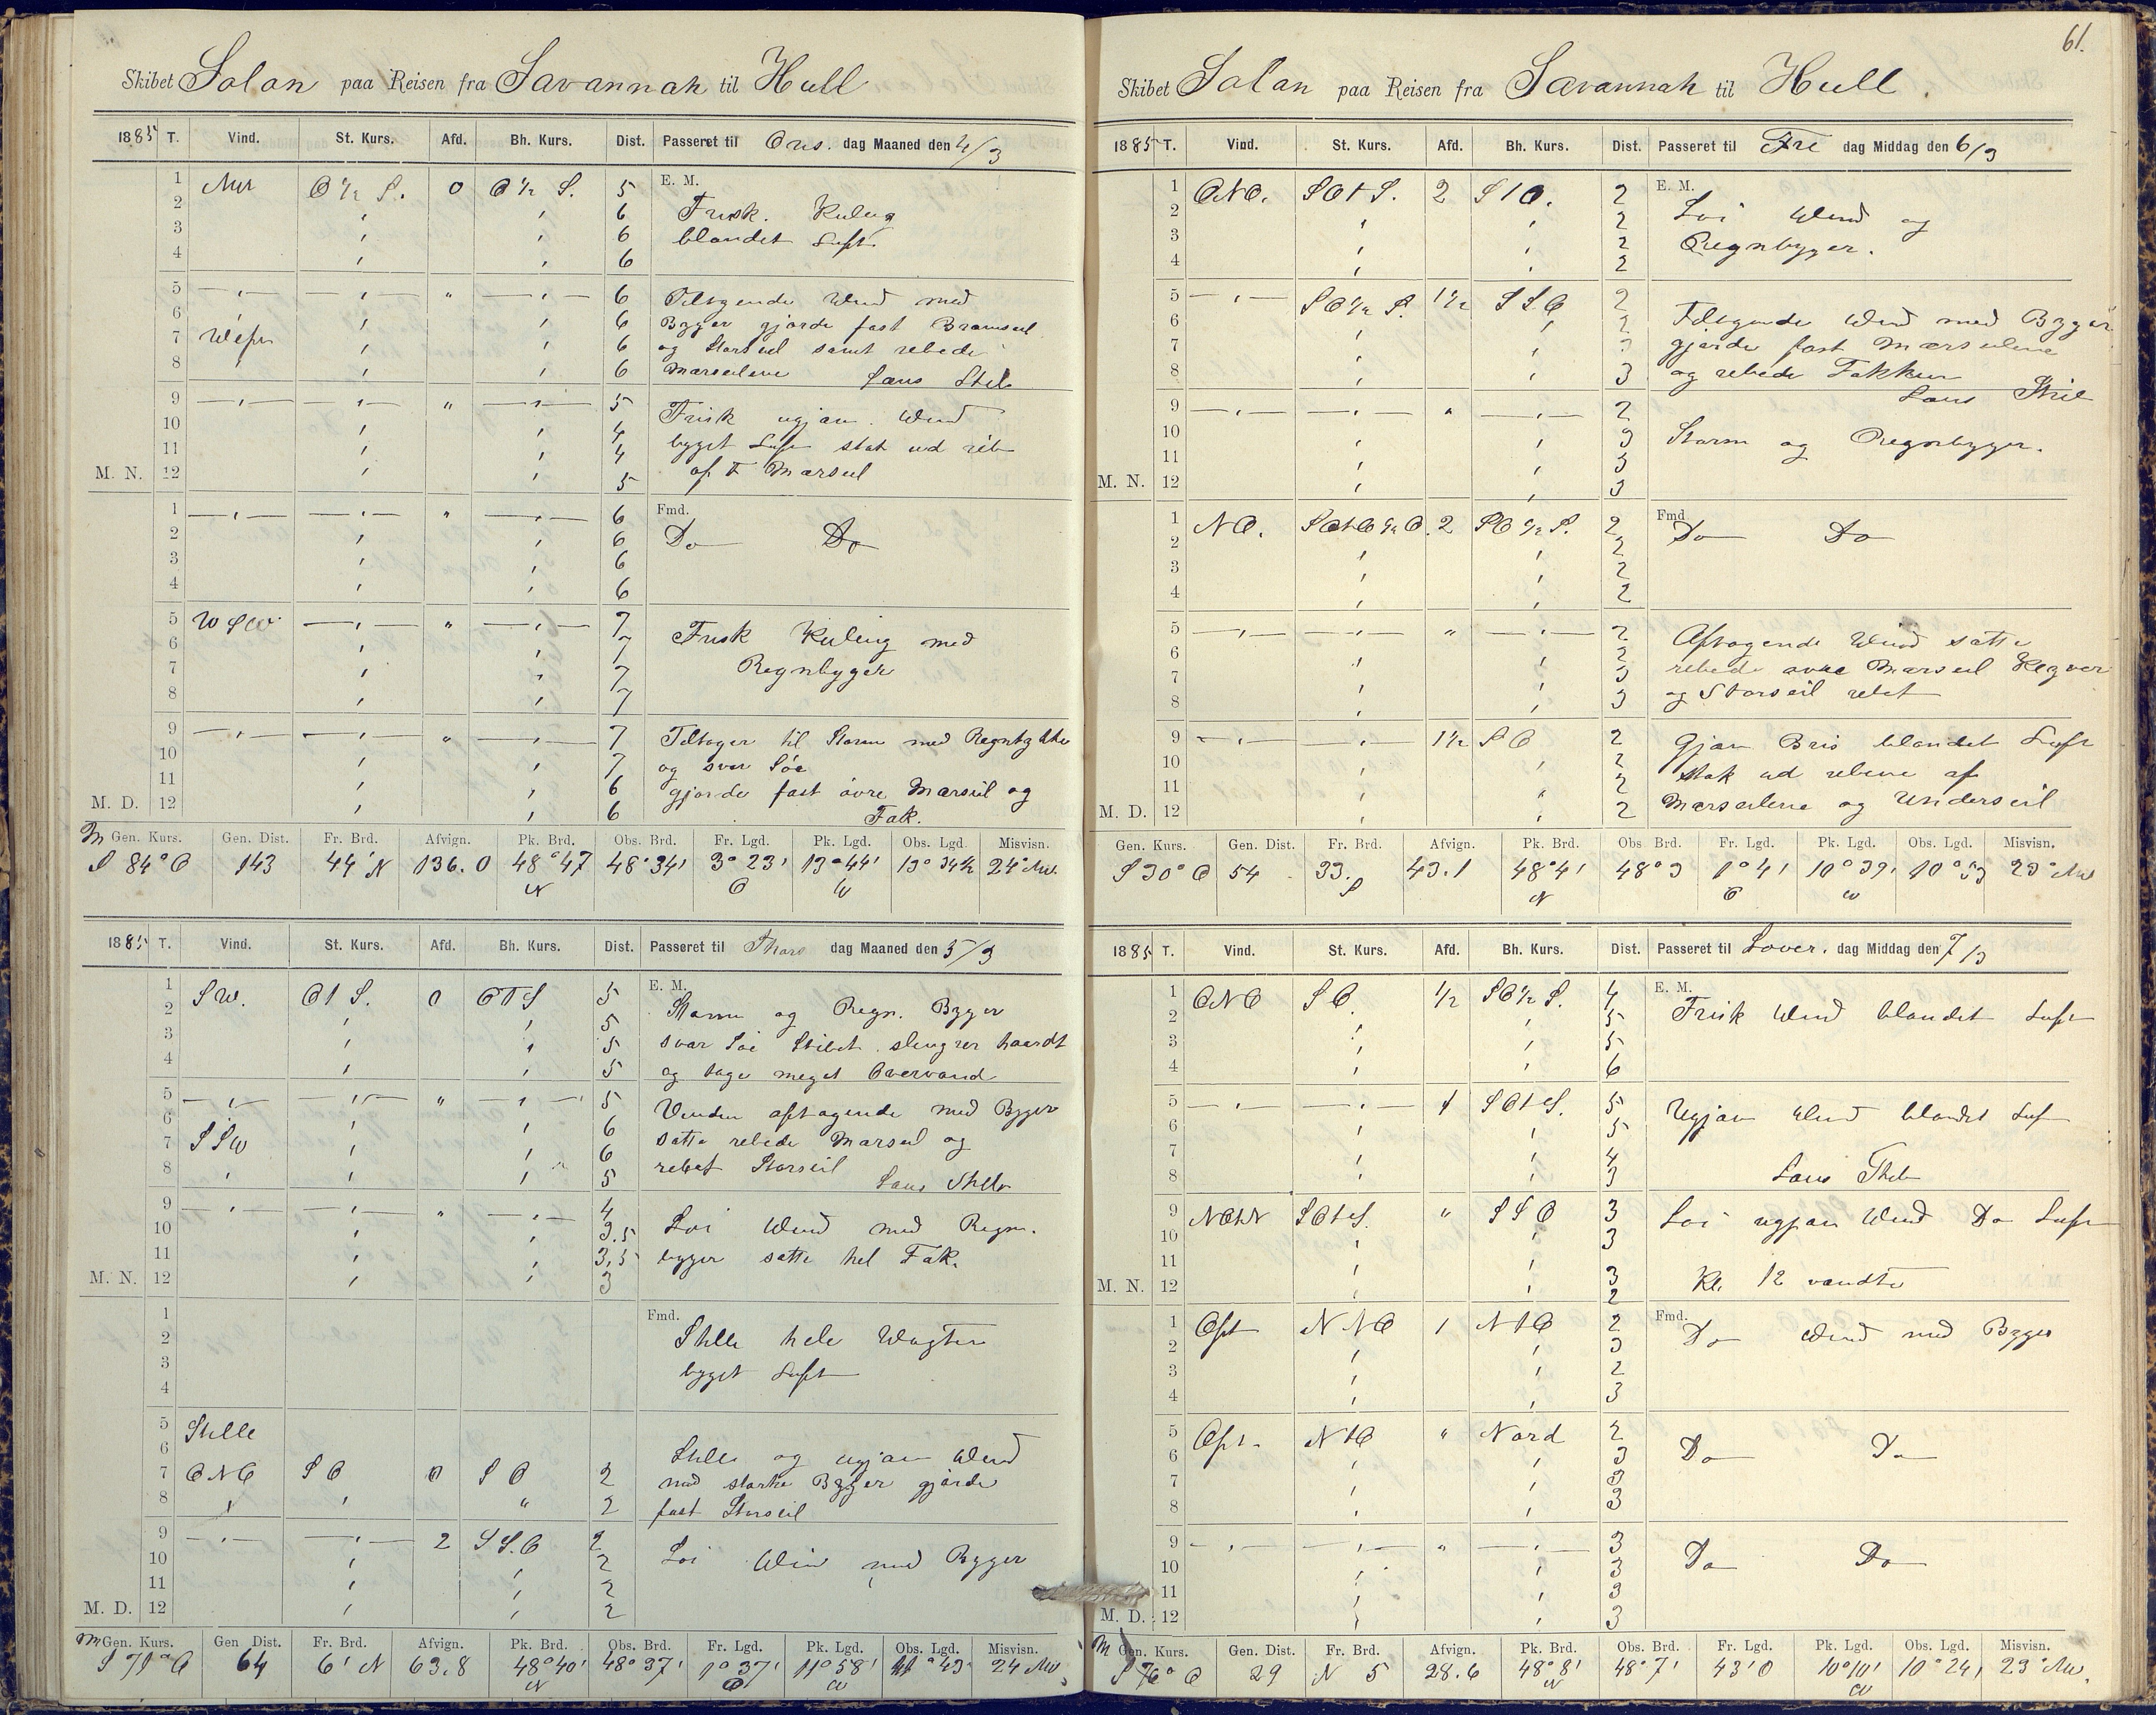 61.
Skibet Solon paa Reisen fra Savannah til Hull
1885 T. Vind. St. Kurs. Afd. Bh. Kurs. Dist. Passeret til Ons. dag Maaned den 4/3
1 NW O ½ S. 0 O ½ S. 5 E. M.
2 6 Frisk. Kuling
3 6 blandet Luft
4 6
5 6 Tiltagende Wind med
6 6 Byger gjorde fast Bramseil
7 6 og Storseil samt rebede
8 6 Marseilene Lens Slet
9 5 Frisk ugjæv. Wind
10 4 byget Luft stak ud reb
11 4 af F Marseil
M. N. 12 5
1 6 Fmd.
2 6 Do Do
3 6
4 6
5 WSW 7
6 7 Frisk Kuling med
7 7 Regnbyger
8 7
9 7 Tiltager til Storm med Regntykke
10 7 og svær Søe
11 6 gjorde fast øvre Marseil og
M. D. 12 6 Fok.
Gen. Kurs. Gen. Dist. Fr. Brd. Afvign. Pk. Brd. Obs. Brd. Fr. Lgd. Pk. Lgd. Obs. Lgd. Misvisn.
S 84° O 143 44' N 136.0 48°47 48°34' 3° 23' 13°44' 13°34½ 24° NW.
N O W
1885 T. Vind. St. Kurs. Afd. Bh. Kurs. Dist. Passeret til Thors dag Maaned den 5/3
1 SW. OtS. 0 OTS 5 E. M.
2 5 Storm og Regn. Byger
3 5 svær Søe Skibet slengrer haardt
4 5 og tage meget Overvand
5 5 Vinden aftagende med Byger
6 6 satte rebede Marseil og
7 SSW 6 rebet Storseil
8 5 Lens
9 4
10 3.5 Løi Wind med Regn.
11 3,5 byger satte hel Fok.
M. N. 12 3
1 Fmd.
2 Stille hele Wagten
3 byget Luft
4
5 Stille
6 Stille og ugjæv Wind
7 ONO SO 0 SO 2 med stærke Byger gjorde
8 2 fast Storseil
9 2 SS.O 2
10 2 Løi Win med Byger
11 2
M. D. 12 2
Gen. Kurs. Gen Dist. Fr. Brd. Afvign. Pk. Brd. Obs. Brd. Fr. Lgd. Pk. Lgd. Obs. Lgd. Misvisn.
S 71° O 64 6' N 63.8 48°40' 48°37' 1°37' 11°58' 43' 24 NW
N O W
Skibet Solon paa Reisen fra Savannah til Hull.
1885 T. Vind. St. Kurs. Afd. Bh. Kurs. Dist. Passeret til Fre dag Middag den 6/3
1 ONO. SOtS. 2 StO. 2 E. M.
2 2 Løi Wind og
3 2 Regnbyger.
4 2
5 SO ½ S. 1½ SSO 2
6 2 Tiltagende Wind med Byger
7 gjorde fast Mærseilene
8 3 og rebede Fokken
9 2 Lens
10 3 Storm og Regnbyger.
11 3
M. N. 12 3
1 NO. SOtO ½ O. 2 SO ½ S. 2 Fmd
2 2 Do Do
3 2
4 2
5 2 Aftagende Wind satte
6 2 rebede øvre Marseil Klyver
7 3 og Storseil rebet
8 3
9 1½ SO 2 Gjæv Bris blandet Luft
10 2 stak ud rebene af
11 2 Mærseilene og Underseil
M. D. 12 2
Gen. Kurs. Gen. Dist. Fr. Brd. Afvign. Pk. Brd. Obs Brd. Fr. Lgd. Pk. Lgd. Obs. Lgd. Misvisn.
S 30° O 54 33. 43.1 48°4' 48°3 1°4' 10°39' 10°53 23° NW
S N O W
1885 T. Vind. St. Kurs. Afd. Bh. Kurs. Dist. Passeret til Løver. dag Middag den 7/3
1 ONO SO. ½ SO½S. 4 E. M.
2 5 Frisk Wind blandet Luft
3 5
4 6
5 1 SOtS. 5 Ugjæv Wind blandet Luf
6 5
7 4
8 3 Lens
9 NOtN SOtS. SSO 3 Løi ugjæv Wind Do Luft
10 3
11 3 Kl. 12 vendte
M. N. 12 2
1 Ost NNO 1 NtO 2 Fmd.
2 3 Do Wind med Byger
3 2
4 3
5 Ost. NtO Nord 2
6 3 Do Do
7 3
8 3
9 3
10 3 Do Do
11 3
M. D. 12 3
Gen. Kurs. Gen. Dist. Fr. Brd. Afvign. Pk. Brd. Obs. Brd. Fr. Lgd. Pk. Lgd. Obs. Lgd. Misvisn.
S 76° O 29 N 5 28.6 48°8' 48°7' 43' O 10°10' 10°24' 23° NW.
N W